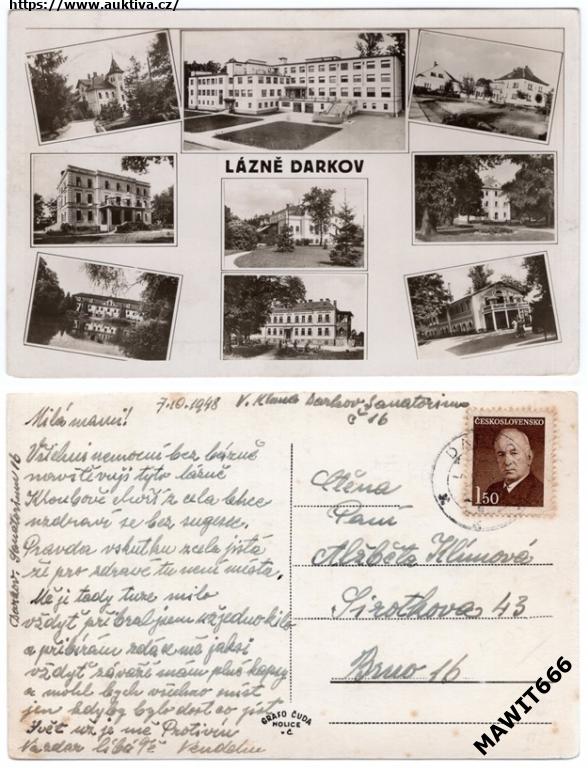 https://www.auktiva.cz/
LÁZNĚ DARKOV
7.10.1948 V. Klíma Darkov Sanatorium
č 16
Milá mami!
Všichni nemocní bez bázně
navštivují tyto lázně
Kloubové chvíš z cela lehce
uzdraví se bez
Pravda vskutku zcela jistá
že pro zdravé tu není místa.
Mě je tady tuze milo
vždyť přibral jsem už jedno kilo
a přibírám zdá se mě jaksi
vždyť závaží mám plné kapsy
a mohl bych všechno sníst
jen kdyby bylo dost co jíst
Svět už je mě
Nazdar líbá Tě Vendelín
Darkov Sanatorium 16
ČESKOSLOVENSKO
1.50
Ctěna
Paní
Alžběta Klímová
Sirotkova 43
Brno 16
GRAFO ČUDA
HOLICE
MAWIT666